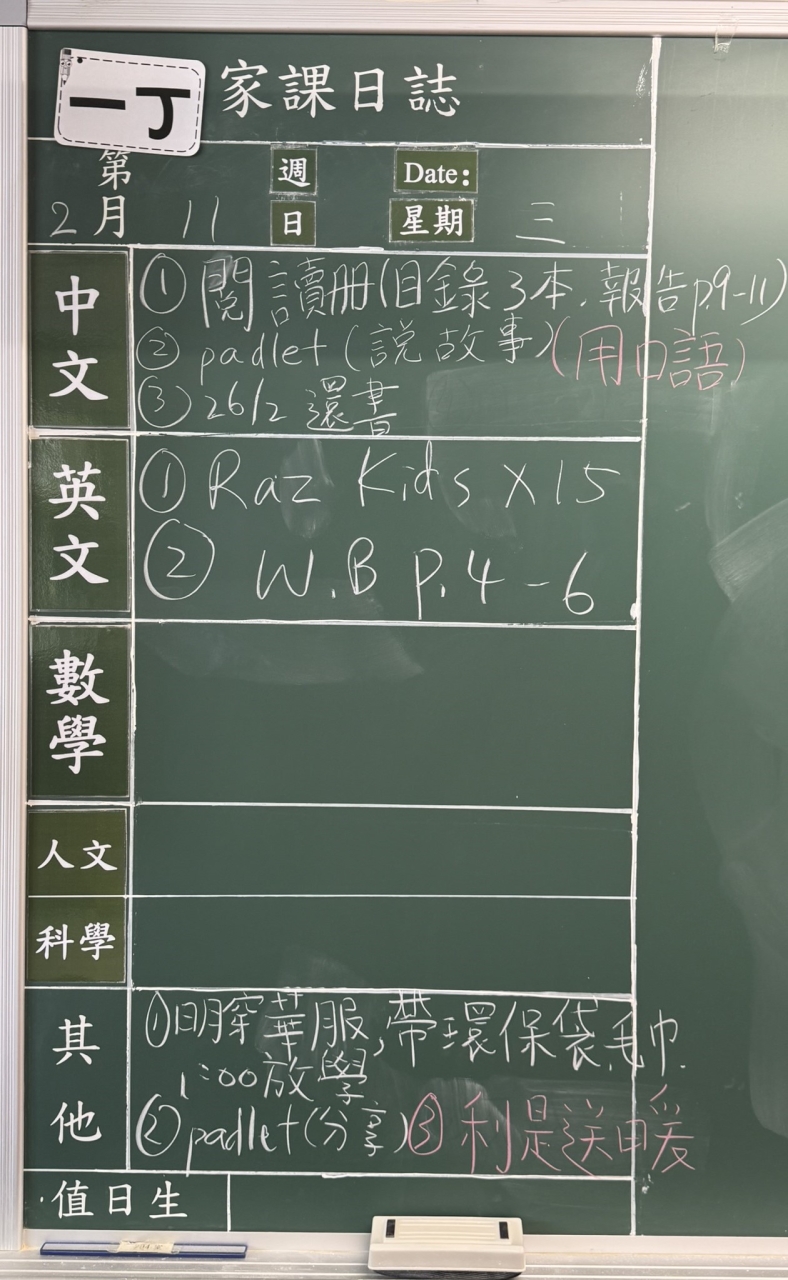 一丁 家課日誌
第 週 Date:
2月 11 日 星期 三
中文
①閱讀冊(目錄3本.報告p.9-11)
②padlet(說故事)(用口語)
③26/2 還書
英文
①Raz Kids X15
② W.B P.4-6
數學
人文
科學
其他
①明穿華服,帶環保袋,毛巾.
1:00放學
②padlet(分享)③利是送暖
值日生